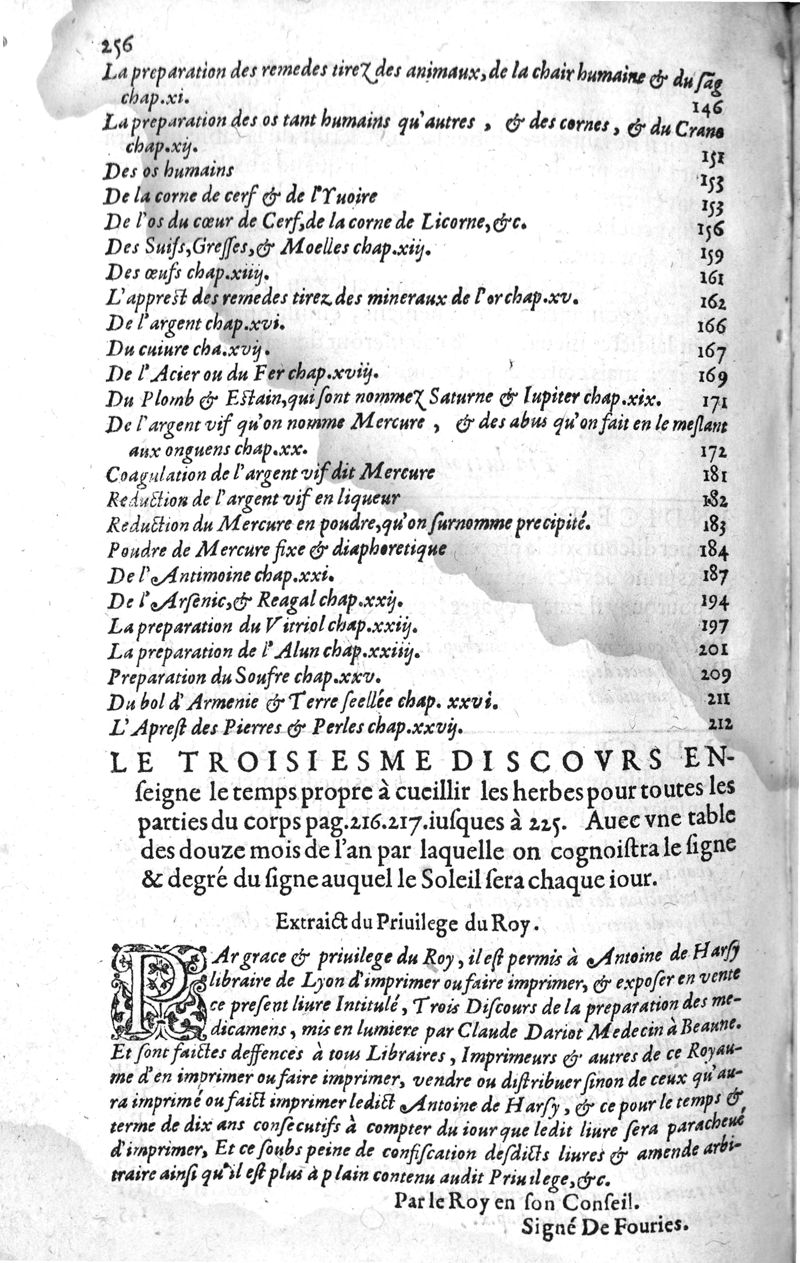 256
La preparation des remedes tirez des animaux, de la chair humaine & du sãg
chap.xi. 146
La preparation des os tant humains qu'autres , & des cornes, & du Crane
chap.xij. 151
Des os humains 153
De la corne de cerf & de l'Yuoire 153
De l'os du cœur de Cerf, de la corne de Licorne, &c. 156
Des Suifs, Gresses, & Moelles chap.xiij. 159
Des œufs chap.xiiij. 161
L'apprest des remedes tirez des mineraux de l'or chap.xv. 162
De l'argent chap.xvi. 166
Du cuiure cha.xvij. 167
De l'Acier ou du Fer chap.xviij. 169
Du Plomb & Estain, qui sont nommez Saturne & Iupiter chap.xix. 171
De l'argent vif qu'on nomme Mercure , & des abus qu'on fait en le meslant
aux onguens chap.xx. 172
Coagulation de l'argent vif dit Mercure 181
Reduction de l'argent vif en liqueur 182
Reduction du Mercure en poudre, qu'on surnomme precipité. 183
Poudre de Mercure fixe & diaphoretique 184
De l'Antimoine chap.xxi. 187
De l'Arsenic, & Reagal chap.xxij. 194
La preparation du Vitriol chap.xxiij. 197
La preparation de l'Alun chap.xxiiij. 201
Preparation du Soufre chap.xxv. 209
Du bol d'Armenie & Terre seellée chap. xxvi. 211
L'Aprest des Pierres & Perles chap.xxvij. 212
LE TROISIESME DISCOVRS EN-
seigne le temps propre à cueillir les herbes pour toutes les
parties du corps pag.216.217.iusques à 225. Auec vne table
des douze mois de l'an par laquelle on cognoistra le signe
& degré du signe auquel le Soleil sera chaque iour.
Extraict du Priuilege du Roy.
PAr grace & priuilege du Roy, il est permis à Antoine de Harsy
libraire de Lyon d'imprimer ou faire imprimer, & exposer en vente
ce present liure Intitulé, Trois Discours de la preparation des me-
dicamens, mis en lumiere par Claude Dariot Medecin à Beaune.
Et sont faictes deffences à tous Libraires, Imprimeurs & autres de ce Royau-
me d'en imprimer ou faire imprimer, vendre ou distribuer sinon de ceux qu'au-
ra imprimé ou faict imprimer ledict Antoine de Harsy, & ce pour le temps &
terme de dix ans consecutifs à compter du iour que ledit liure sera paracheué
d'imprimer, Et ce soubs peine de confiscation desdicts liures & amende arbi-
traire ainsi qu'il est plus à plain contenu audit Priuilege, &c.
Par le Roy en son Conseil.
Signé De Fouries.